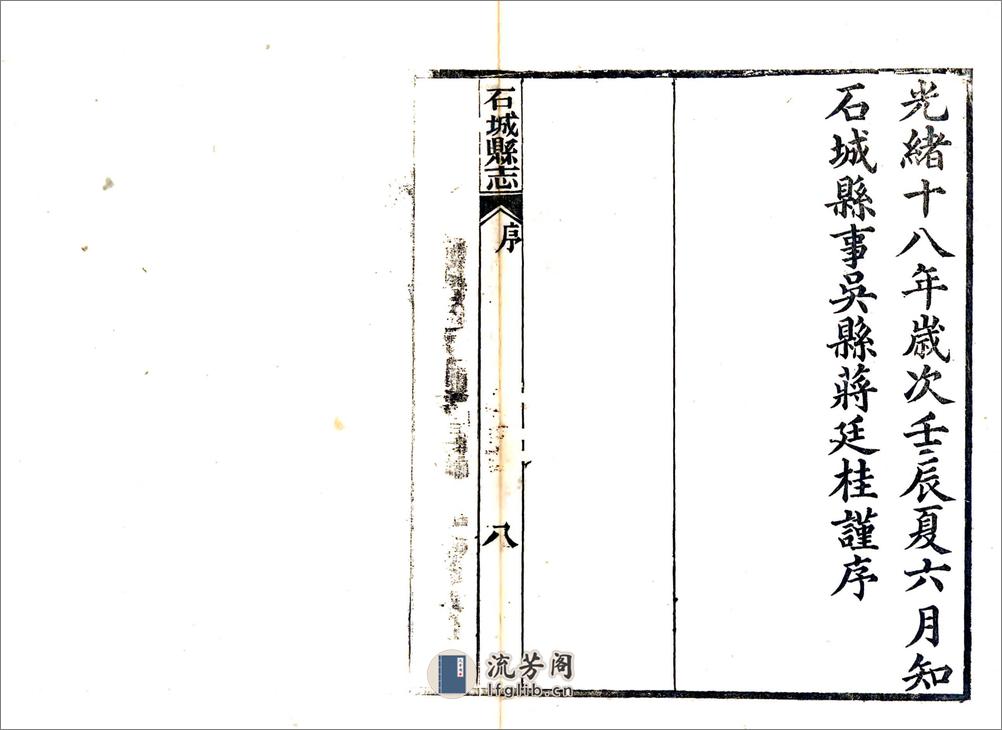 光緒十八年歲次壬辰夏六月知
石城縣事吳縣蔣廷桂謹序
石城縣志
序
八
流芳阁
lfglib.cn